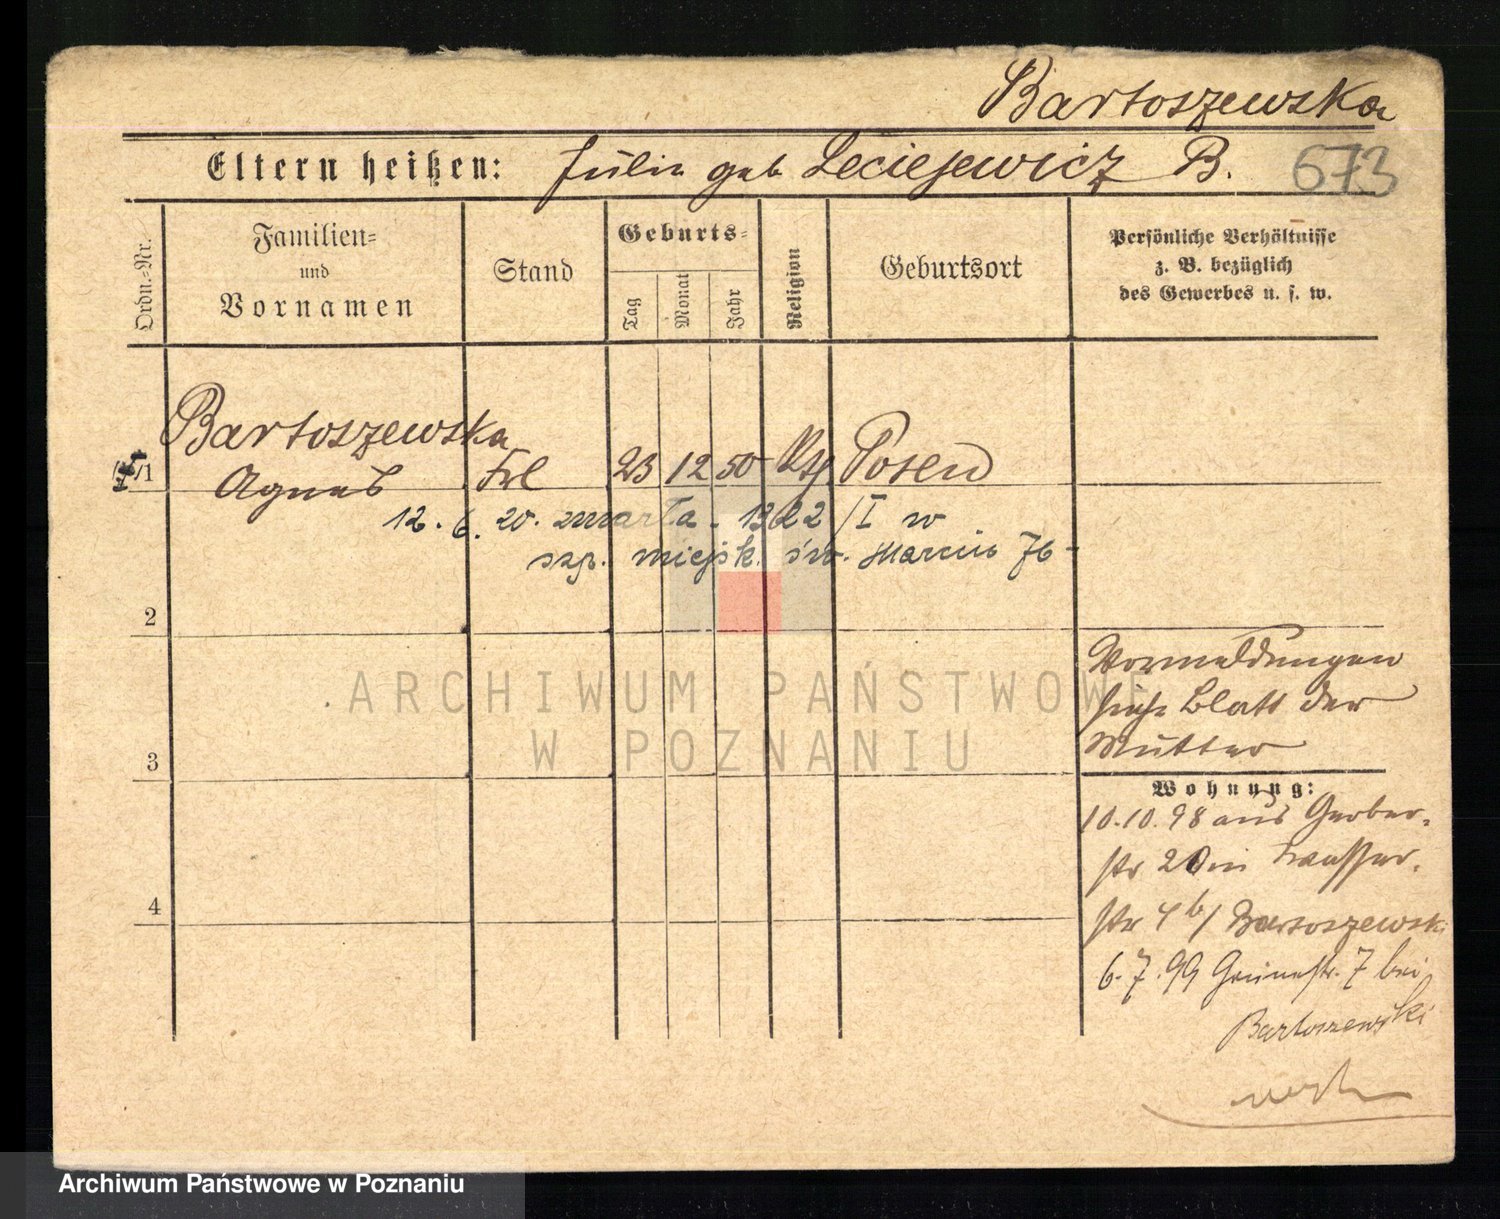 Bartoszewska
Eltern heißen: Julie geb Leciejewicz B. 673
Ordn.-Nr.
Familien-
und
Vornamen
Stand
Geburts-
Tag
Monat
Jahr
Religion
Geburtsort
Persönliche Verhältnisse
z. B. bezüglich
des Gewerbes u. s. w.
Bartoszewska
1 Agnes Frl 23 12 50 Posen
12. 6. 20. zmarła - 1922/I w
szp. miejsk. św. Marcin 76 -
2
Vormeldungen
siehe Blatt der
Mutter
3
Wohnung:
10.10.98 aus Gerber-
str 20 in Wasser-
str 4 b/ Bartoszewski
4
6.7.99 Grünestr. 7 bei
Bartoszewski
ARCHIWUM PAŃSTWOWE
W POZNANIU
Archiwum Państwowe w Poznaniu